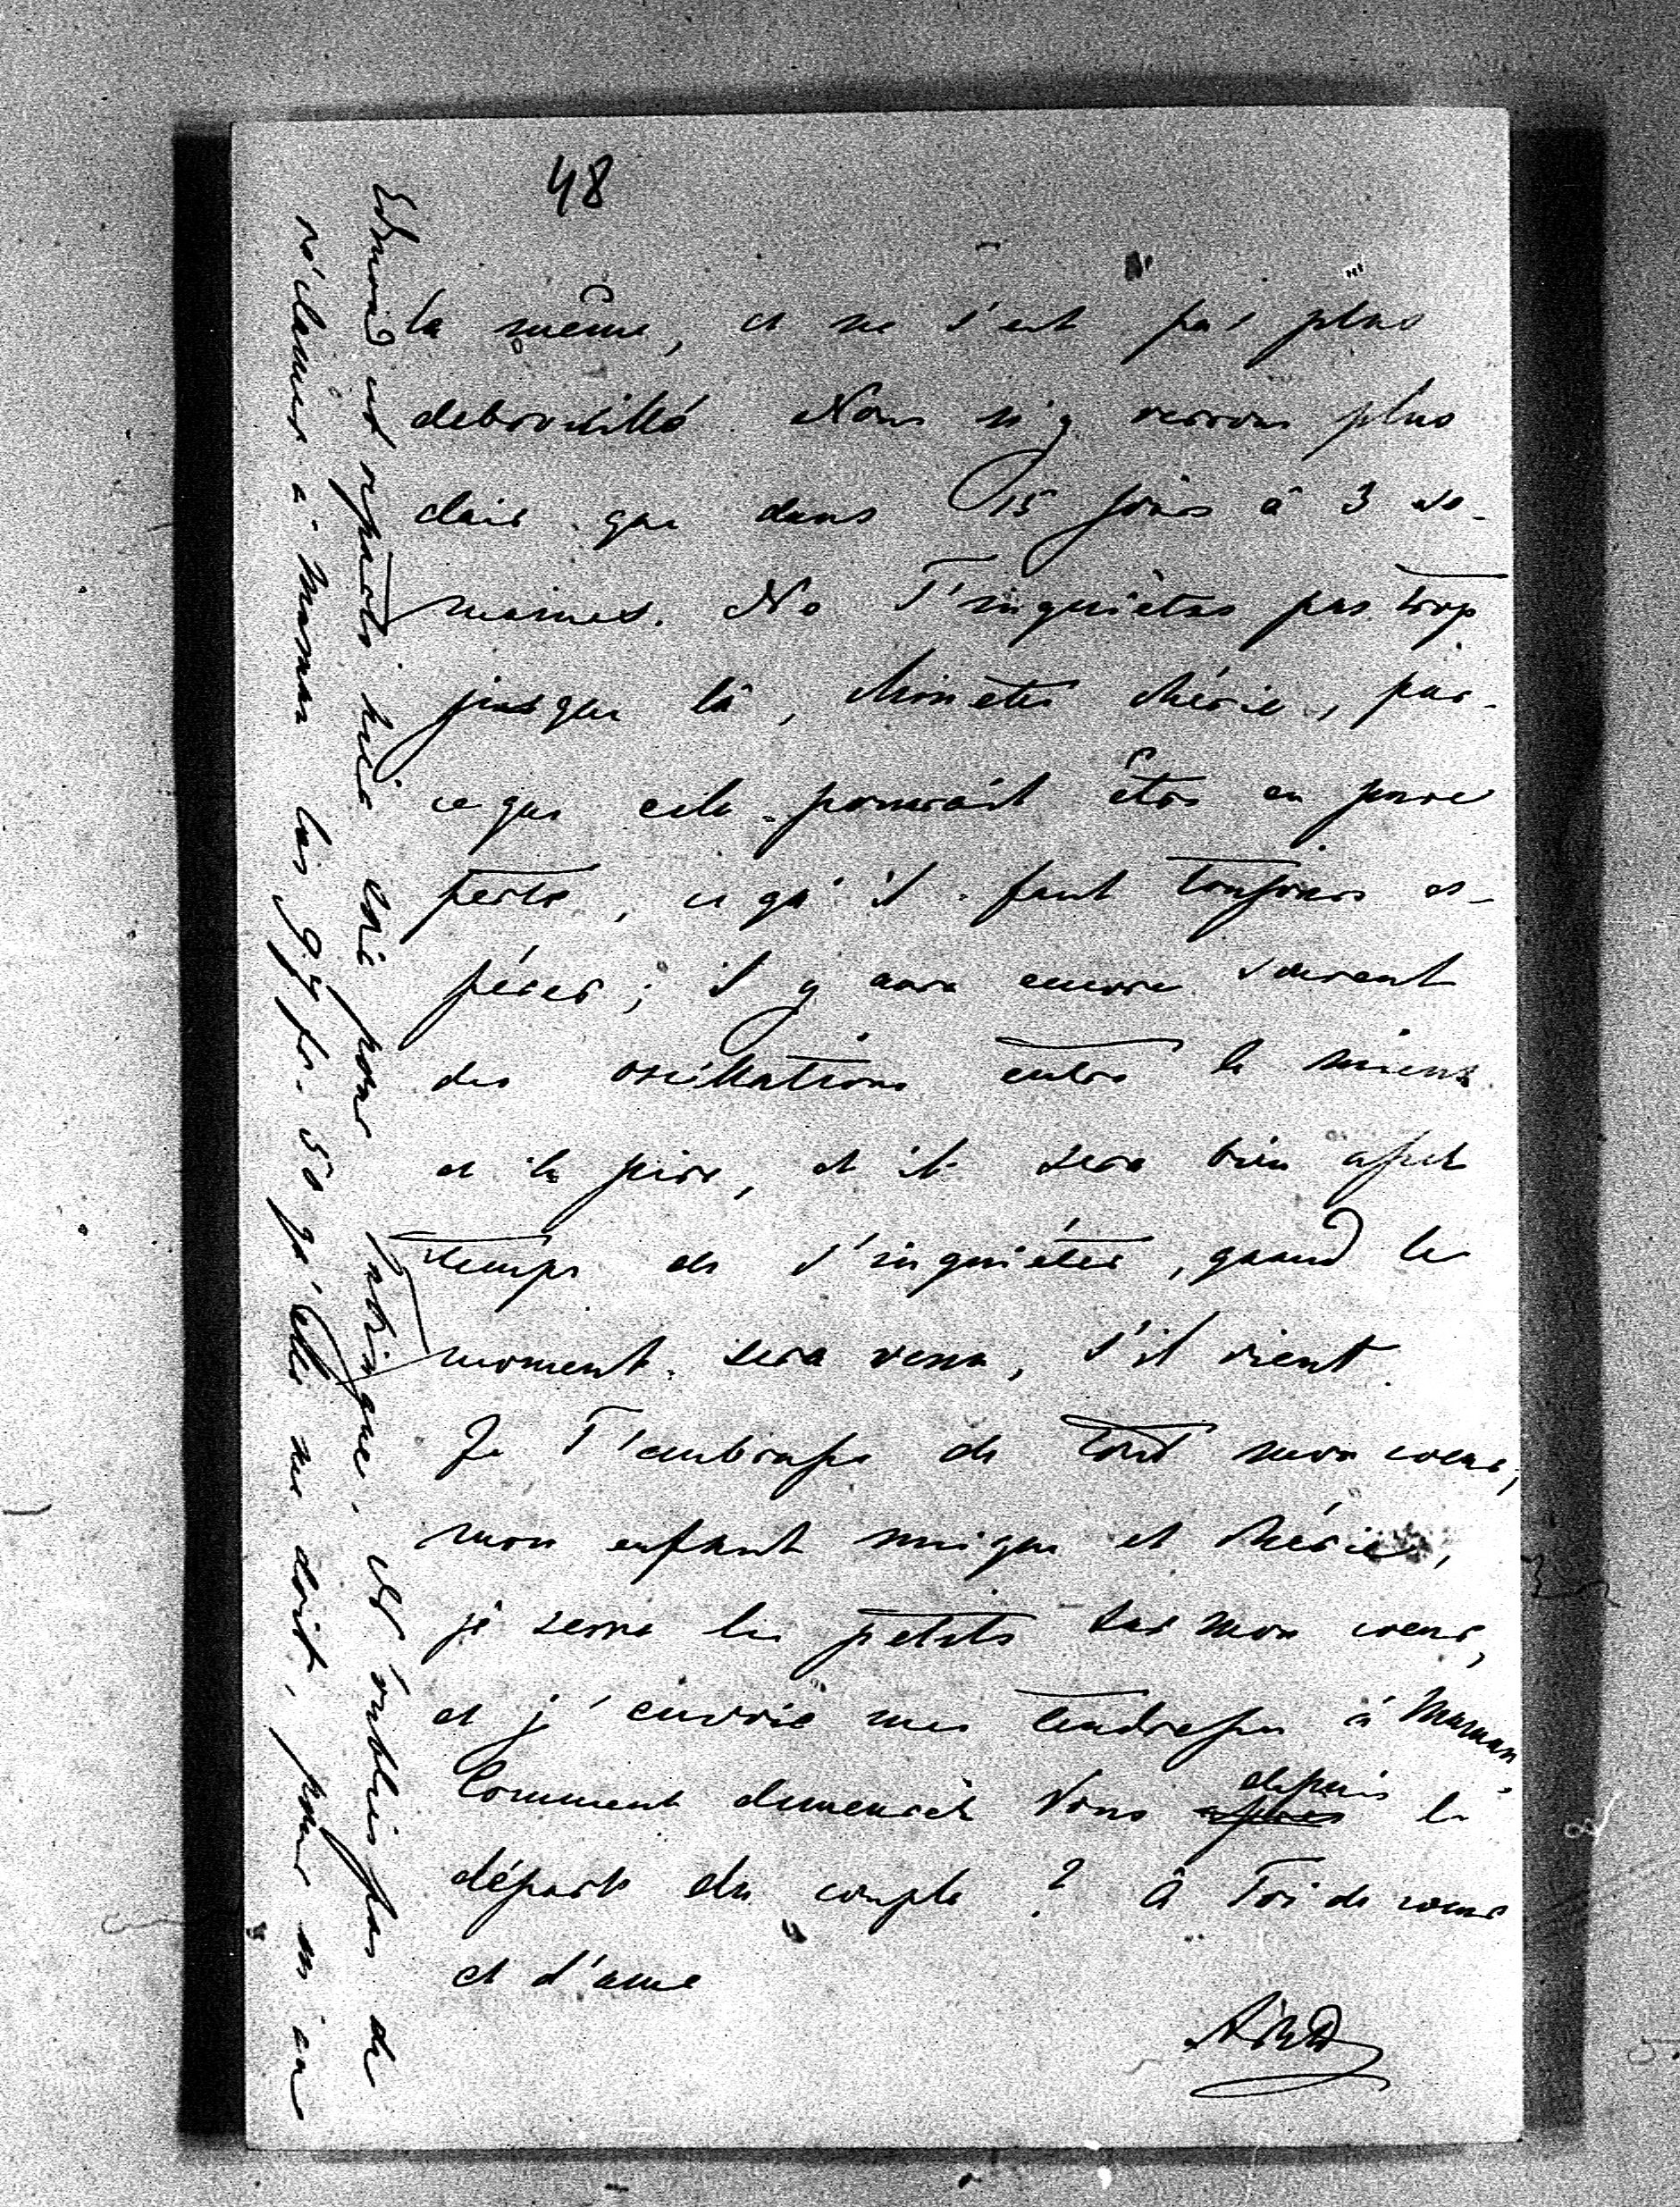 48
la même, et ne s'est pas plus
debrouillé. Nous n'y verrons plus
clair que dans 15 jours à 3 se-
maines. Ne T'inquiètes pas trop
jusque là, Minette chérie, par-
ceque cela pourrait être en pure
perte, ce qu'il faut toujours es-
pérer ; il y aura encore souvent
des oscillations entre le mieux
et le pire, et il sera bien assez
temps de s'inquiéter, quand le
moment sera venu, s'il vient.
Je T'embrasse de tout mon coeur,
mon enfant unique et chérie,
je serre les petits sur mon coeur,
et j'envoie mes tendresses à Maman.
Comment demeurez Vous depuis le
départ du couple ? à Toi de coeur
et d'ame
Edmond est reparti hier soir pour . N'oublies pas de
réclamer à Maman les 97 fr. 50 qu'elle me doit, pour un an